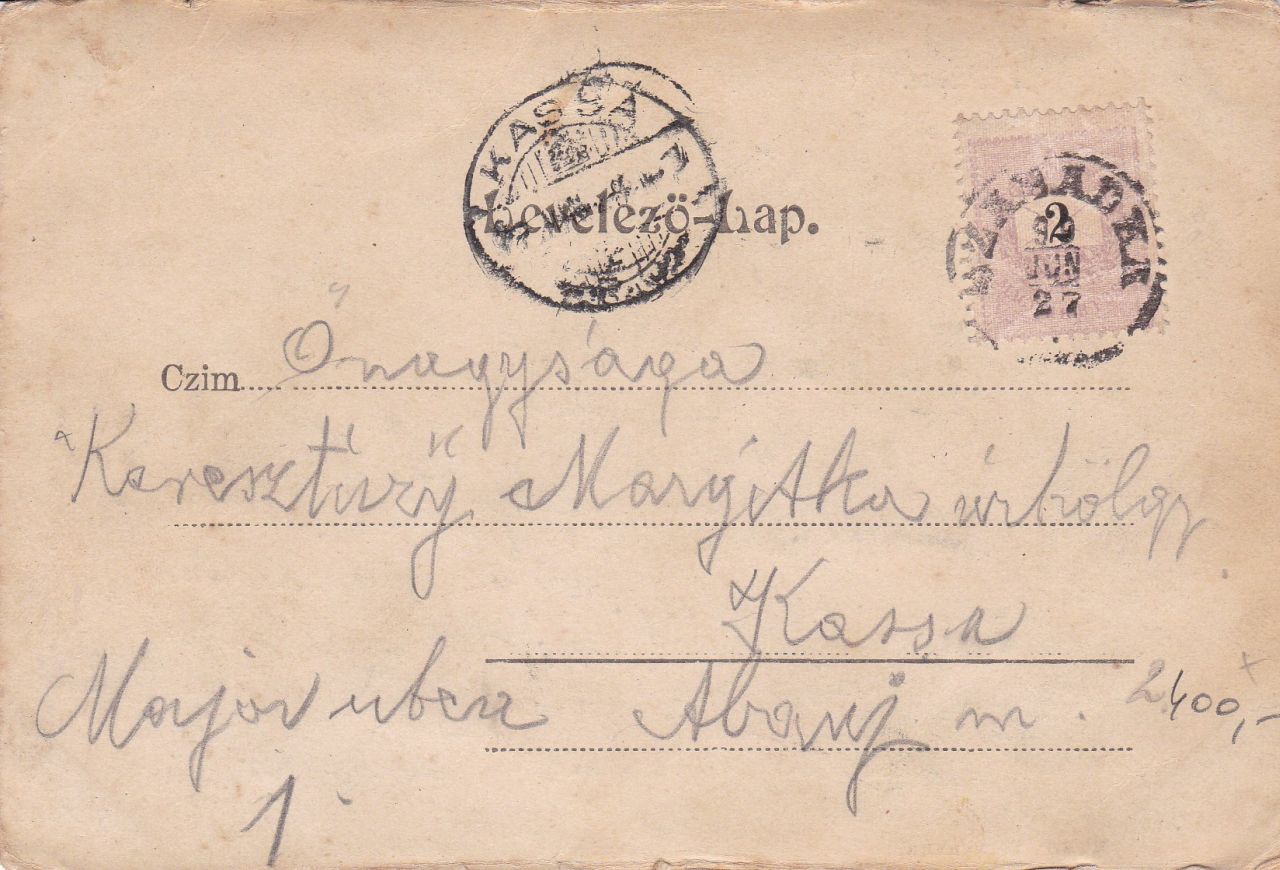 KASSA
Levelező-Lap.
SZABADKA
2
JUN
27
Czim Őnagysága
Keresztúry Margitka úrhölgy
Kassa
Major ucza Abauj m.
1.
2400,-